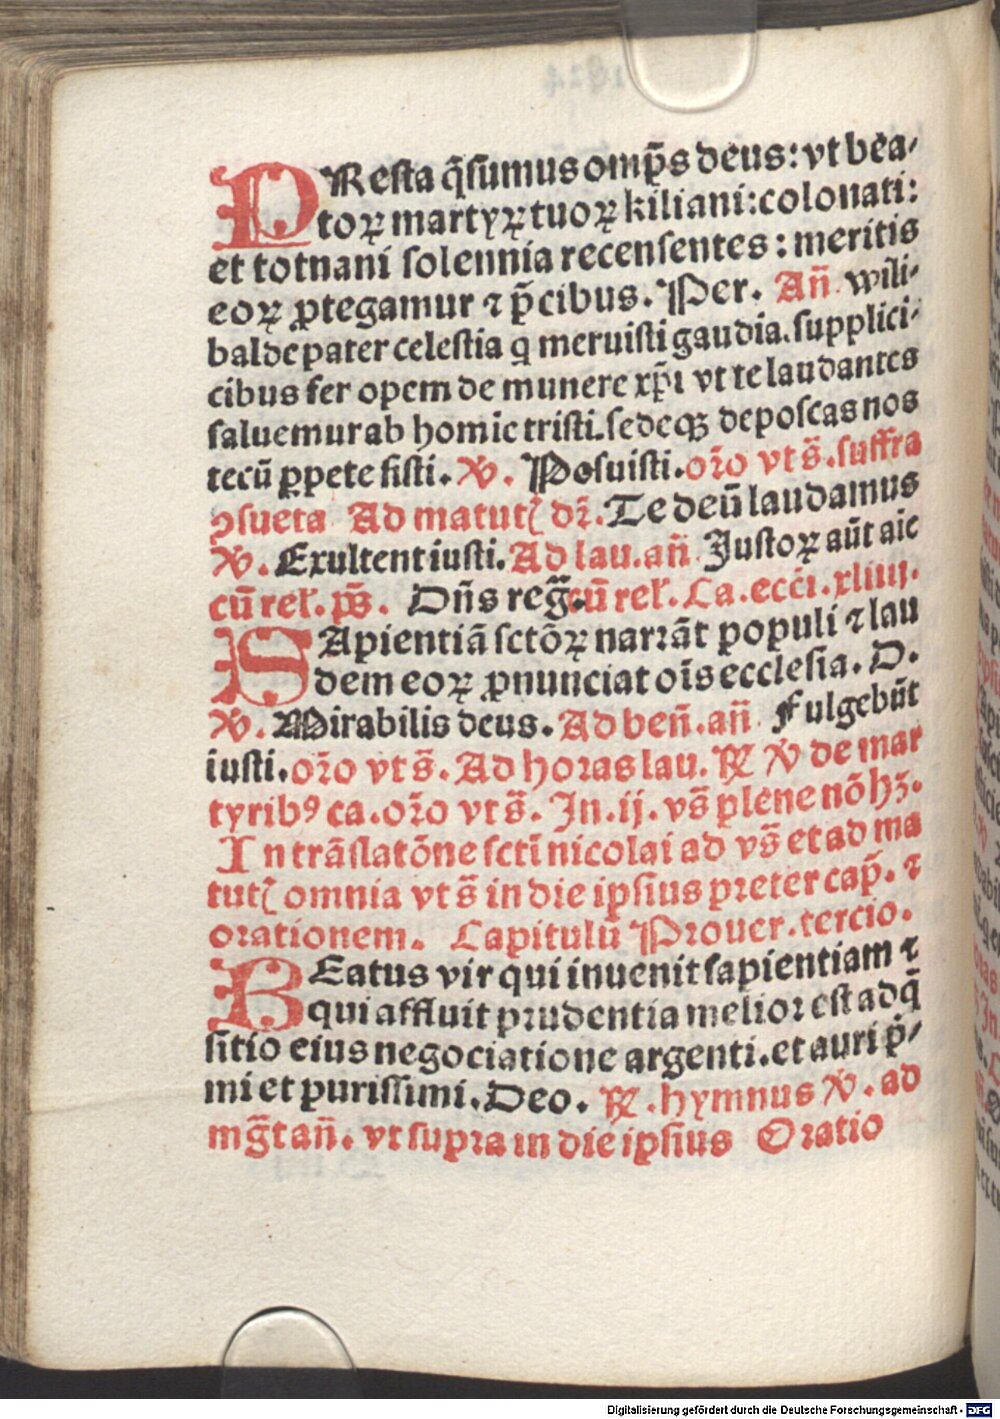 PResta q̄sumus omp̄s deus: vt bea⸗
toꝝ martyꝝ tuoꝝ kiliani: colonati:
et totnani solennia recensentes: meritis
eoꝝ ꝓtegamur ⁊ p̄cibus. Per. An̄ wili⸗
balde pater celestia q̄ meruisti gaudia. supplici⸗
cibus fer opem de munere xp̄i vt te laudantes
saluemur ab homic tristi. sedeqꝫ deposcas nos
tecū ꝑpete fisti. ℣. Posuisti. oꝛo vt s̄. suffra
ꝯsueta Ad matut̄ dꝛ̄. Te deū laudamus
℣. Exultent iusti. Ad lau. an̄ Justoꝝ aūt aīe
cū rel̄. ps̄. Dn̄s reḡ. cū rel̄. Ca. ecci. xliiij.
SApientiā sctōꝝ narrāt populi ⁊ lau
dem eoꝝ ꝓnunciat oīs ecclesia. D.
℣. Mirabilis deus. Ad ben̄. an̄ Fulgebūt
iusti. oꝛo vt s̄. Ad horas lau. ℟ ℣ de mar
tyribꝰ ca. oꝛo vt s̄. In. ij. vs̄ plene nō hꝫ.
In trāslatōne sctī nicolai ad vs̄ et ad ma
tut̄ omnia vt s̄ in die ipsius pꝛeter cap̄. ⁊
oꝛationem. Capitulū Pꝛouer. tercio.
BEatus vir qui inuenit sapientiam ⁊
qui affluit pꝛudentia melioꝛ est adq̄
sitio eius negociatione argenti. et auri p̄⸗
mi et purissimi. Deo. ℟. hymnus ℣. ad
mḡt an̄. vt supꝛa in die ipsius Oꝛatio
Digitalisierung gefördert durch die Deutsche Forschungsgemeinschaft - DFG